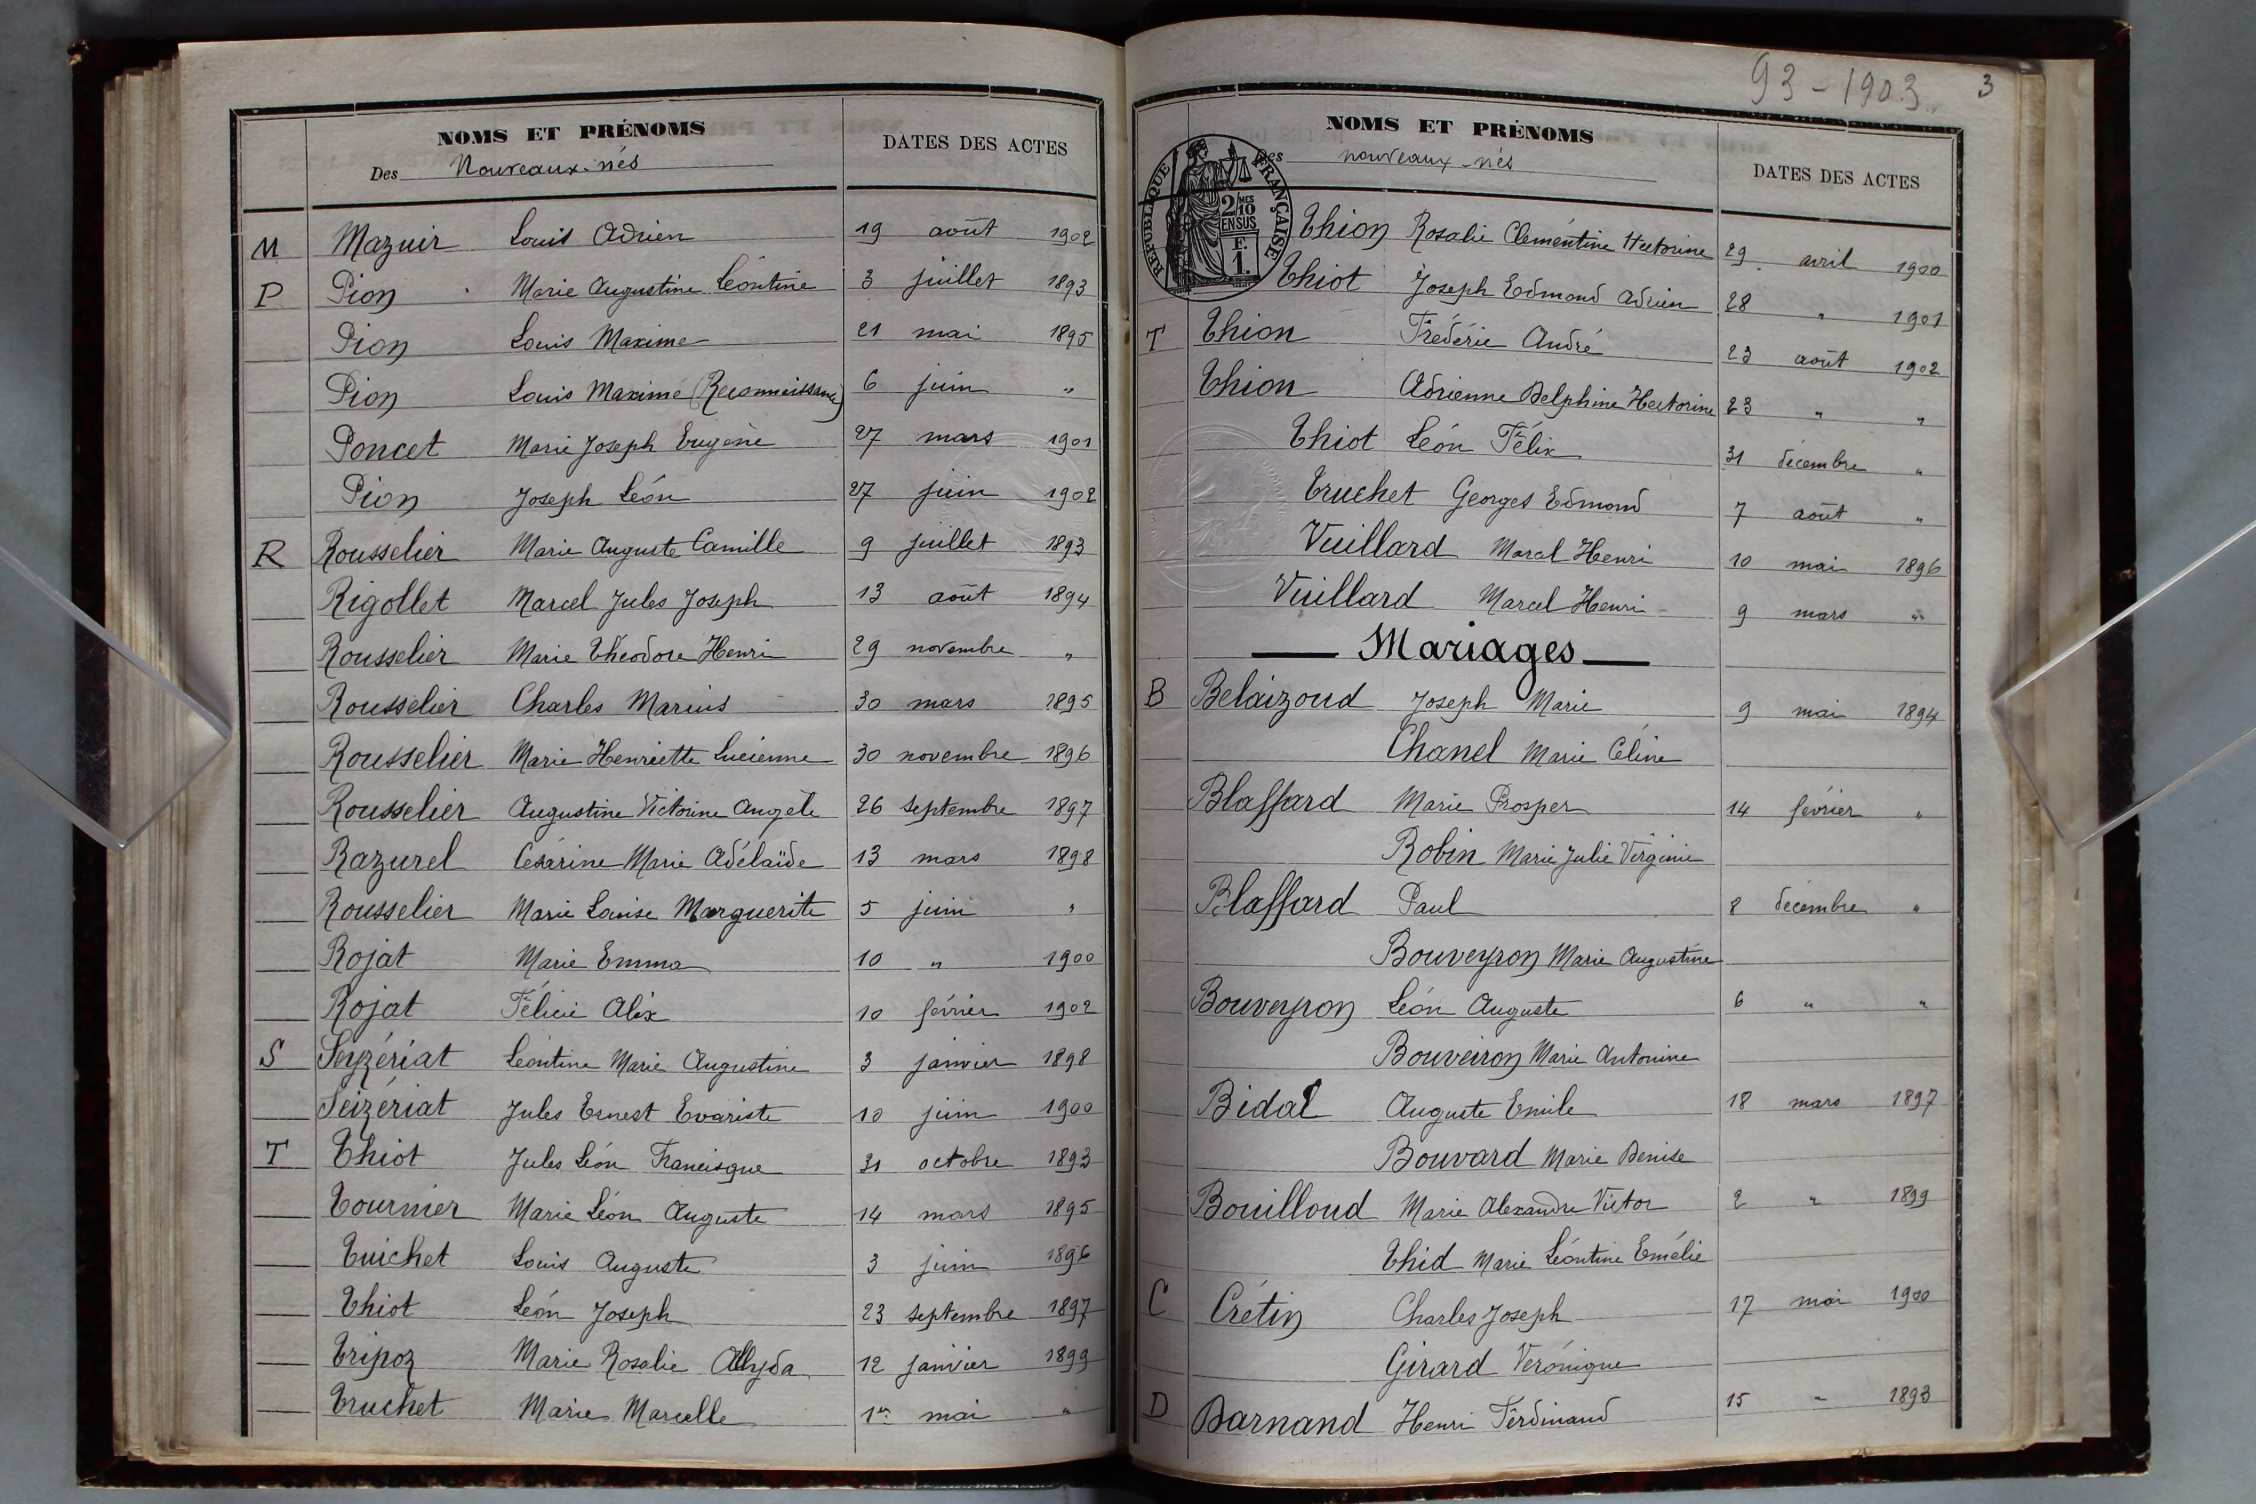 NOMS ET PRÉNOMS
Des Nouveaux-nés
DATES DES ACTES
M Mazuir Louis Adrien 19 août 1902
P Pion Marie Augustine Léontine 3 juillet 1893
Pion Louis Maxime 21 mai 1895
Pion Louis Maxime (Reconnaissance) 6 juin "
Poncet Marie Joseph Eugène 27 mars 1901
Pion Joseph Léon 27 juin 1902
R Rousselier Marie Auguste Camille 9 juillet 1893
Rigollet Marcel Jules Joseph 13 août 1894
Rousselier Marie Théodore Henri 29 novembre "
Rousselier Charles Marius 30 mars 1895
Rousselier Marie Henriette Lucienne 30 novembre 1896
Rousselier Augustine Victorine Angèle 26 septembre 1897
Razurel Césarine Marie Adélaïde 13 mars 1898
Rousselier Marie Louise Marguerite 5 juin "
Rojat Marie Emma 10 " 1900
Rojat Félicie Alix 10 février 1902
S Seyzériat Léontine Marie Augustine 3 janvier 1898
Seizériat Jules Ernest Evariste 10 juin 1900
T Thiot Jules Léon Francisque 31 octobre 1893
Tournier Marie Léon Auguste 14 mars 1895
Tuichet Louis Auguste 3 juin 1896
Thiot Léon Joseph 23 septembre 1897
Tripoz Marie Rosalie Allyda 12 janvier 1899
Truchet Marie Marcelle 1er mai "
93-1903 3
NOMS ET PRÉNOMS
Des nouveaux-nés
DATES DES ACTES
RÉPUBLIQUE FRANÇAISE
2/10 MES
EN SUS
F.
1.
Thion Rosalie Clémentine Hectorine 29 avril 1900
Thiot Joseph Edmond Adrien 28 " 1901
T Thion Frédéric André 23 août 1902
Thion Adrienne Delphine Hectorine 23 " "
Thiot Léon Félix 31 décembre "
Truchet Georges Edmond 7 août "
Vuillard Marcel Henri 10 mai 1896
Vuillard Marcel Henri 9 mars "
Mariages
B Belaizoud Joseph Marie 9 mai 1894
Chanel Marie Céline
Blaffard Marie Prosper 14 février "
Robin Marie Julie Virginie
Blaffard Paul 8 décembre "
Bouveyron Marie Augustine
Bouveyron Léon Auguste 6 " "
Bouveiron Marie Antonine
Bidal Auguste Emile 18 mars 1897
Bouvard Marie Denise
Bouilloud Marie Alexandre Victor 2 " 1899
Thid Marie Léontine Emélie
C Crétin Charles Joseph 17 mai 1900
Girard Véronique
D Darnand Henri Ferdinand 15 " 1893